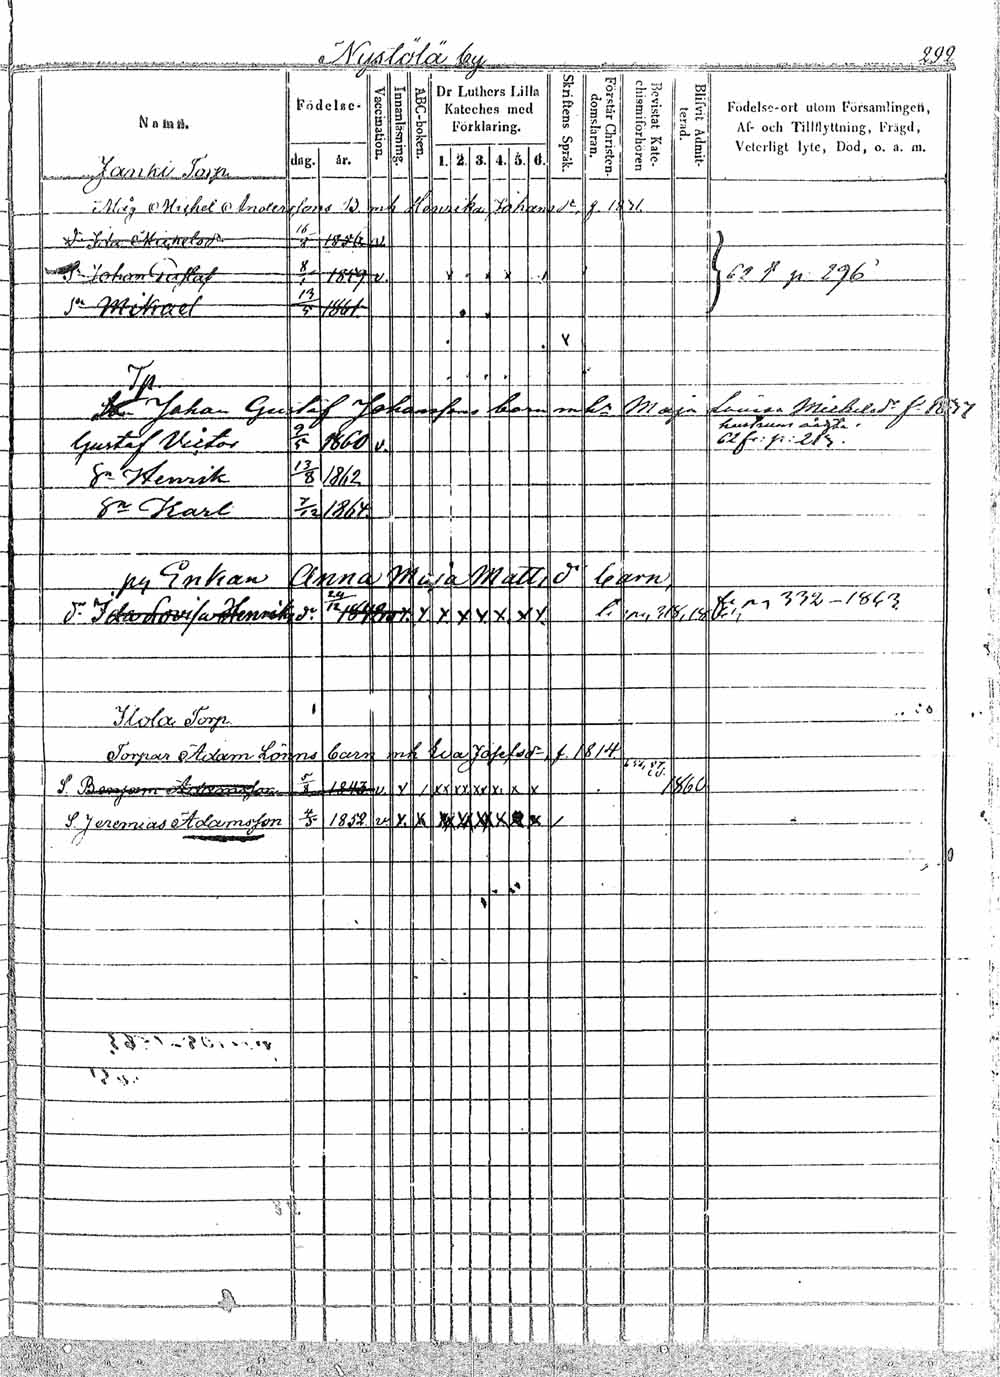 Nystölä by 292
Namn.
Födelse-
dag. år.
Vaccination.
Innanläsning.
ABC-boken.
Dr Luthers Lilla Kateches med Förklaring.
1. 2. 3. 4. 5. 6.
Skriftens Språk.
Förstår Christendomsläran.
Bevistat Katechismiförhören
Blifvit Admitterad.
Födelse-ort utom Församlingen,
Af- och Tillflyttning, Frägd,
Veterligt lyte, Död, o. a. m.
Janki Torp
Michel Anderssons B. mh Henrika Johansdr, f 1821
dr Ida Michelsdr 16/8 1856 v.
Sn Johan Gustaf 8/1 1859 v. 62 f p 296
Sn Mikael 13/5 1861
Tp.
Johan Gustaf Johanssons barn mhu Maja Lovisa Michelsdr f. 1837
Gustaf Victor 9/5 1860 v. 62 fr: p: 213.
Sn Henrik 13/8 1862
Sn Karl 7/12 1864.
py Enkan Anna Maja Matts dr barn,
dr Ida Lovisa Henriks dr 24/12 1842 x x x x x x x 332-1863
Ilola Torp
Torpar Adam Lönns barn mh Eva Josefsdr, f. 1814
S. Benjam Adamsson 5/3 1843 v. x / xx xx xx x x x 1860
S. Jeremias Adamsson 4/5 1852 v x x x x x x x x /